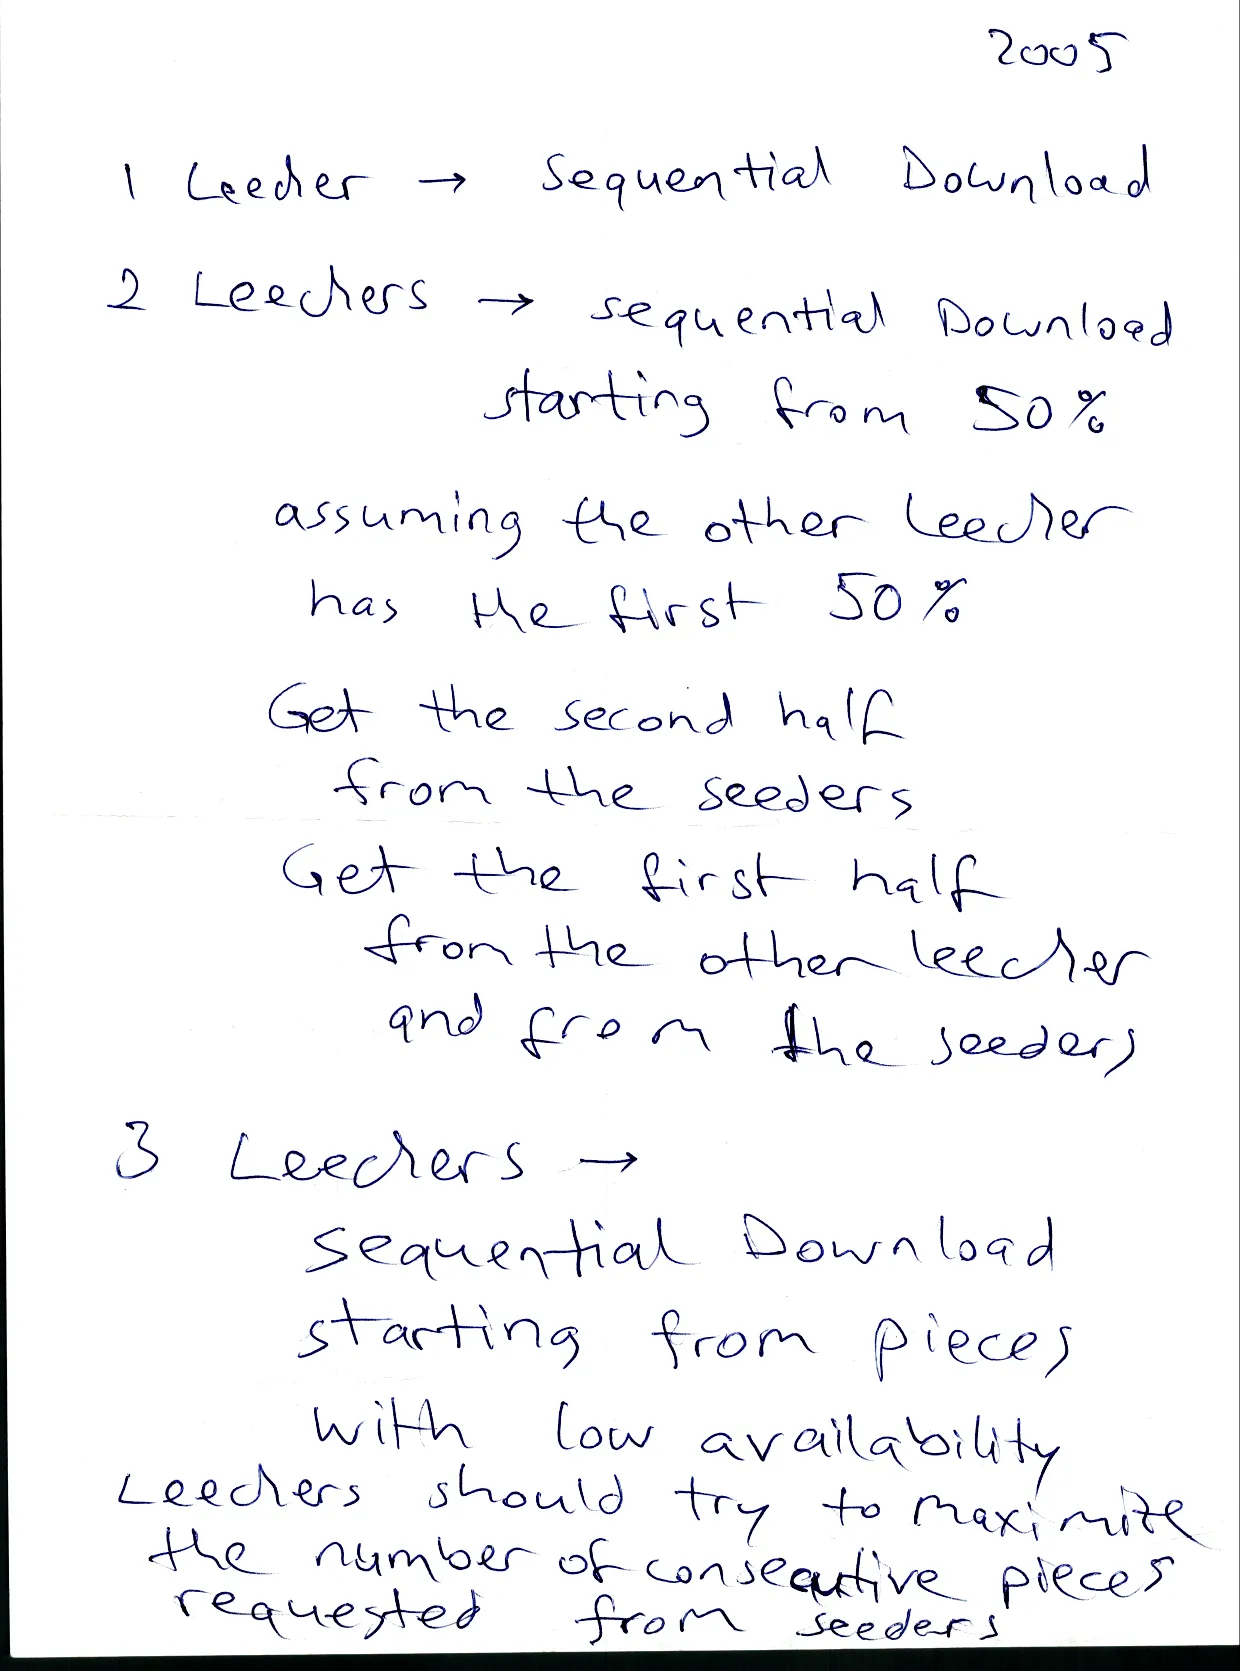 2005
1 Leecher → Sequential Download
2 Leechers → sequential Download
starting from 50%
assuming the other leecher
has the first 50%
Get the second half
from the seeders
Get the first half
from the other leecher
and from the seeders
3 Leechers →
sequential Download
starting from pieces
with low availability
Leechers should try to maximize
the number of consecutive pieces
requested from seeders